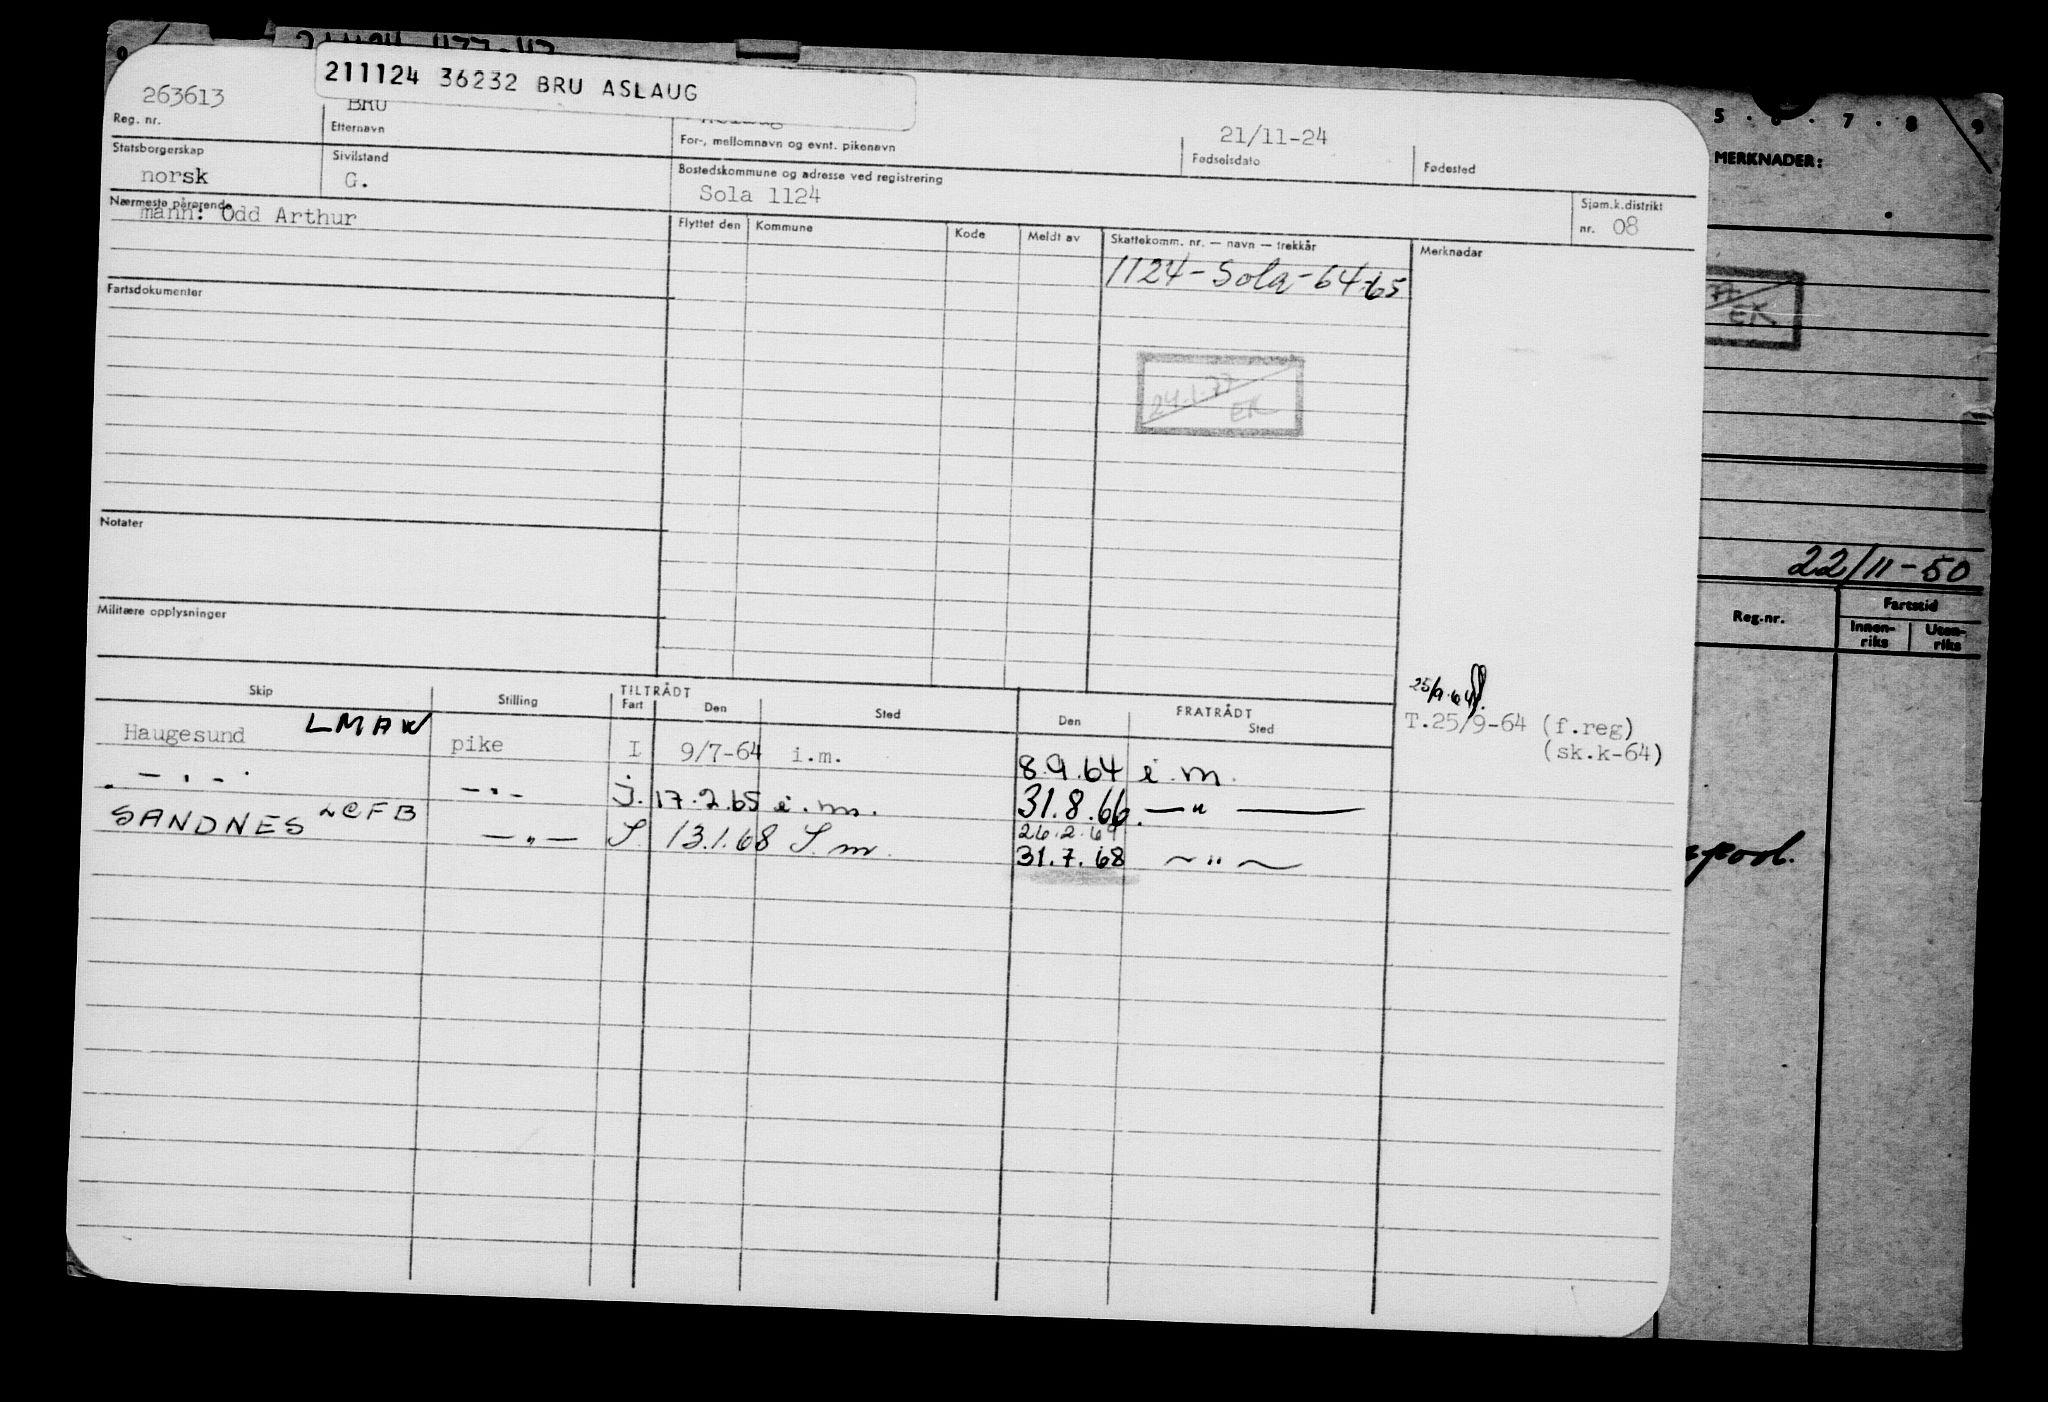 211124 36232 BRU ASLAUG
263613 BRU 21/11-24
Reg. nr. Etternavn For-, mellomnavn og evnt. pikenavn Fødselsdato Fødested
Statsborgerskap Sivilstand Bostedskommune og adresse ved registrering
norsk G. Sola 1124
Sjøm.k.distrikt
nr. 08
Nærmeste pårørende
mann: Odd Arthur
Flyttet den Kommune Kode Meldt av Skattekomm. nr. — navn — trekkår Merknader
1124-Sola-64-65
Fartsdokumenter
24.1.77
EK
Notater
Militære opplysninger
Skip Stilling TILTRÅDT FRATRÅDT
Fart Den Sted Den Sted
25/9.64
T.25/9-64 (f.reg)
(sk.k-64)
Haugesund LMAW pike I 9/7-64 i.m. 8.9.64 i.m.
— " — — " — j. 17.2.65 i.m. 31.8.66. — " —
SANDNES ~CFB — " — S. 13.1.68 S.m. 26.2.69
31.7.68 ~ " ~
5 . 6 . 7 . 8 9
MERKNADER:
EK
22/11-50
Reg.nr. Fartstid
Innen-
riks
Uten-
riks